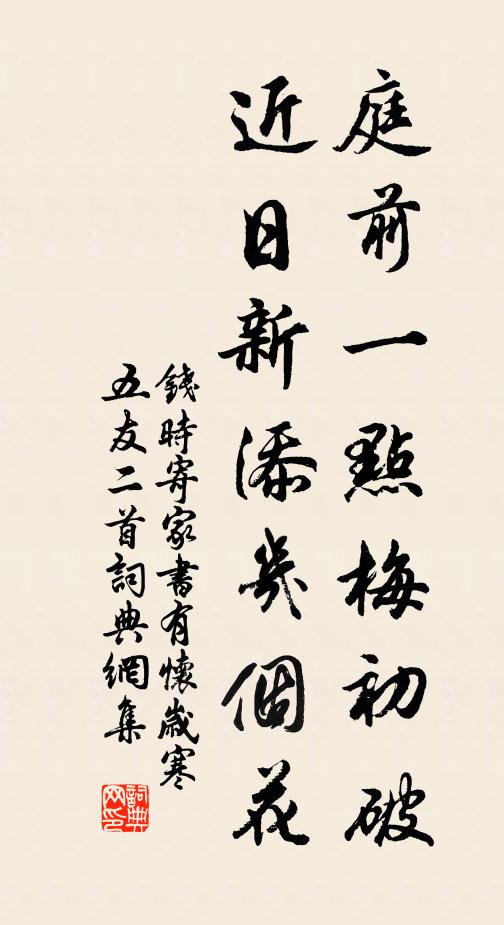 庭前一點梅初破
近日新添幾個花
錢時寄家書有懷歲寒
五友二首詞典網集
詞典網印